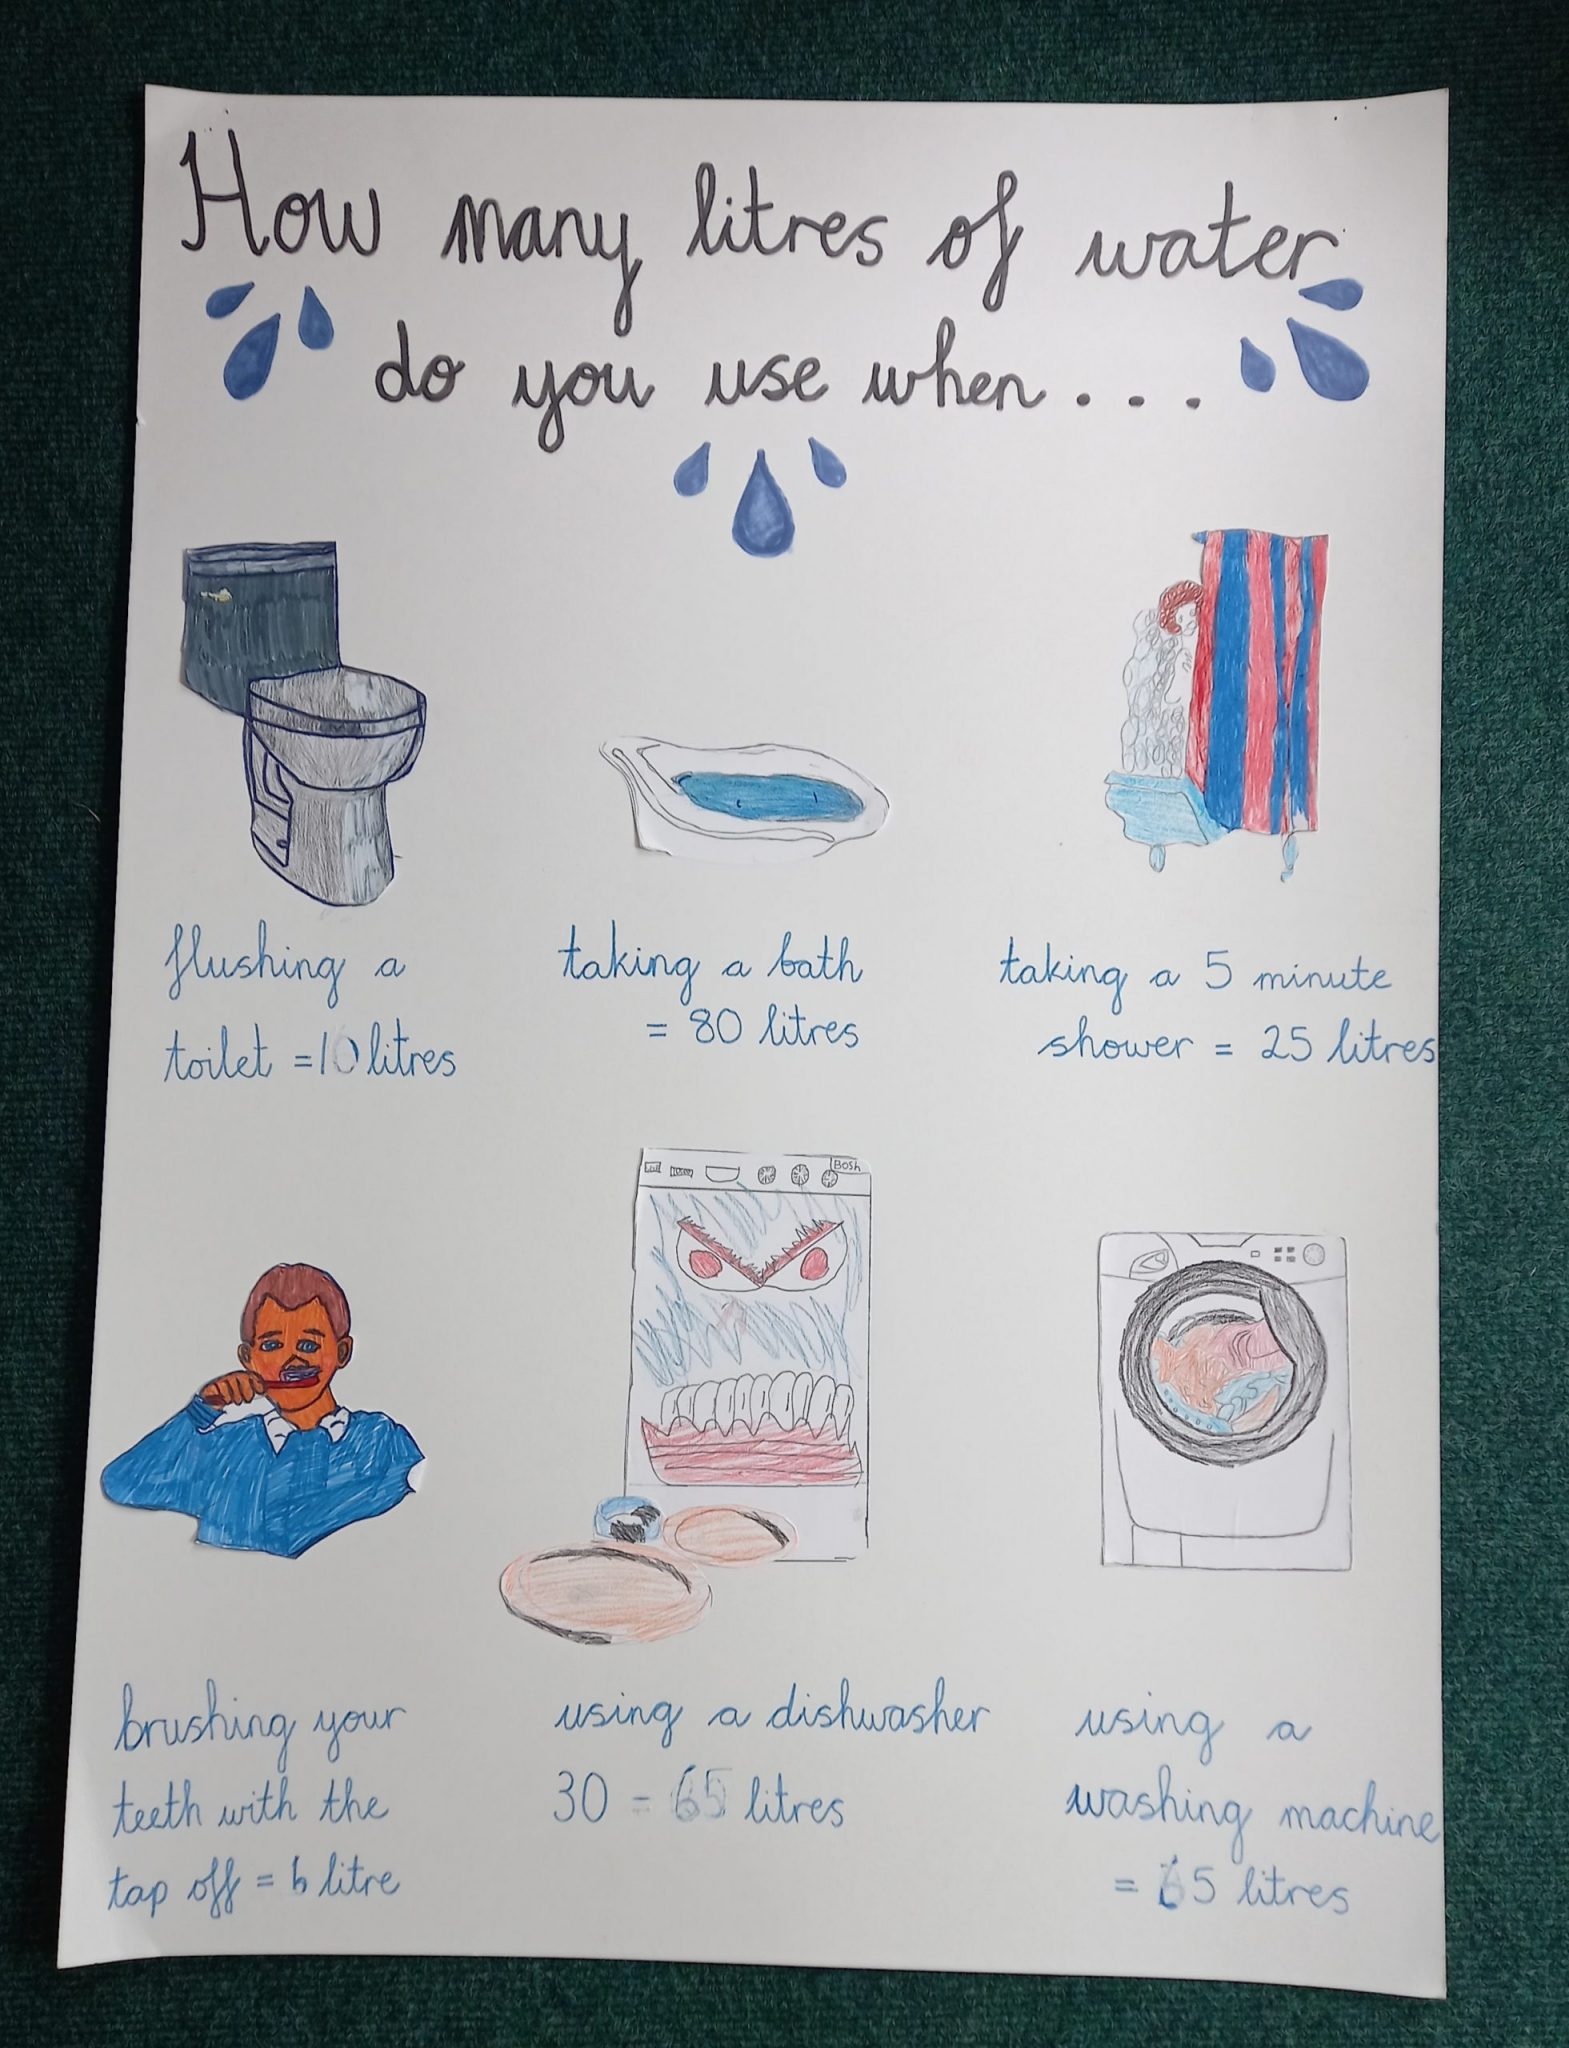 How many litres of water
do you use when...
flushing a
toilet =10 litres
taking a bath
= 80 litres
taking a 5 minute
shower = 25 litres
BOSH
brushing your
teeth with the
tap off = litre
using a dishwasher
30 = litres
using a
washing machine
= 65 litres